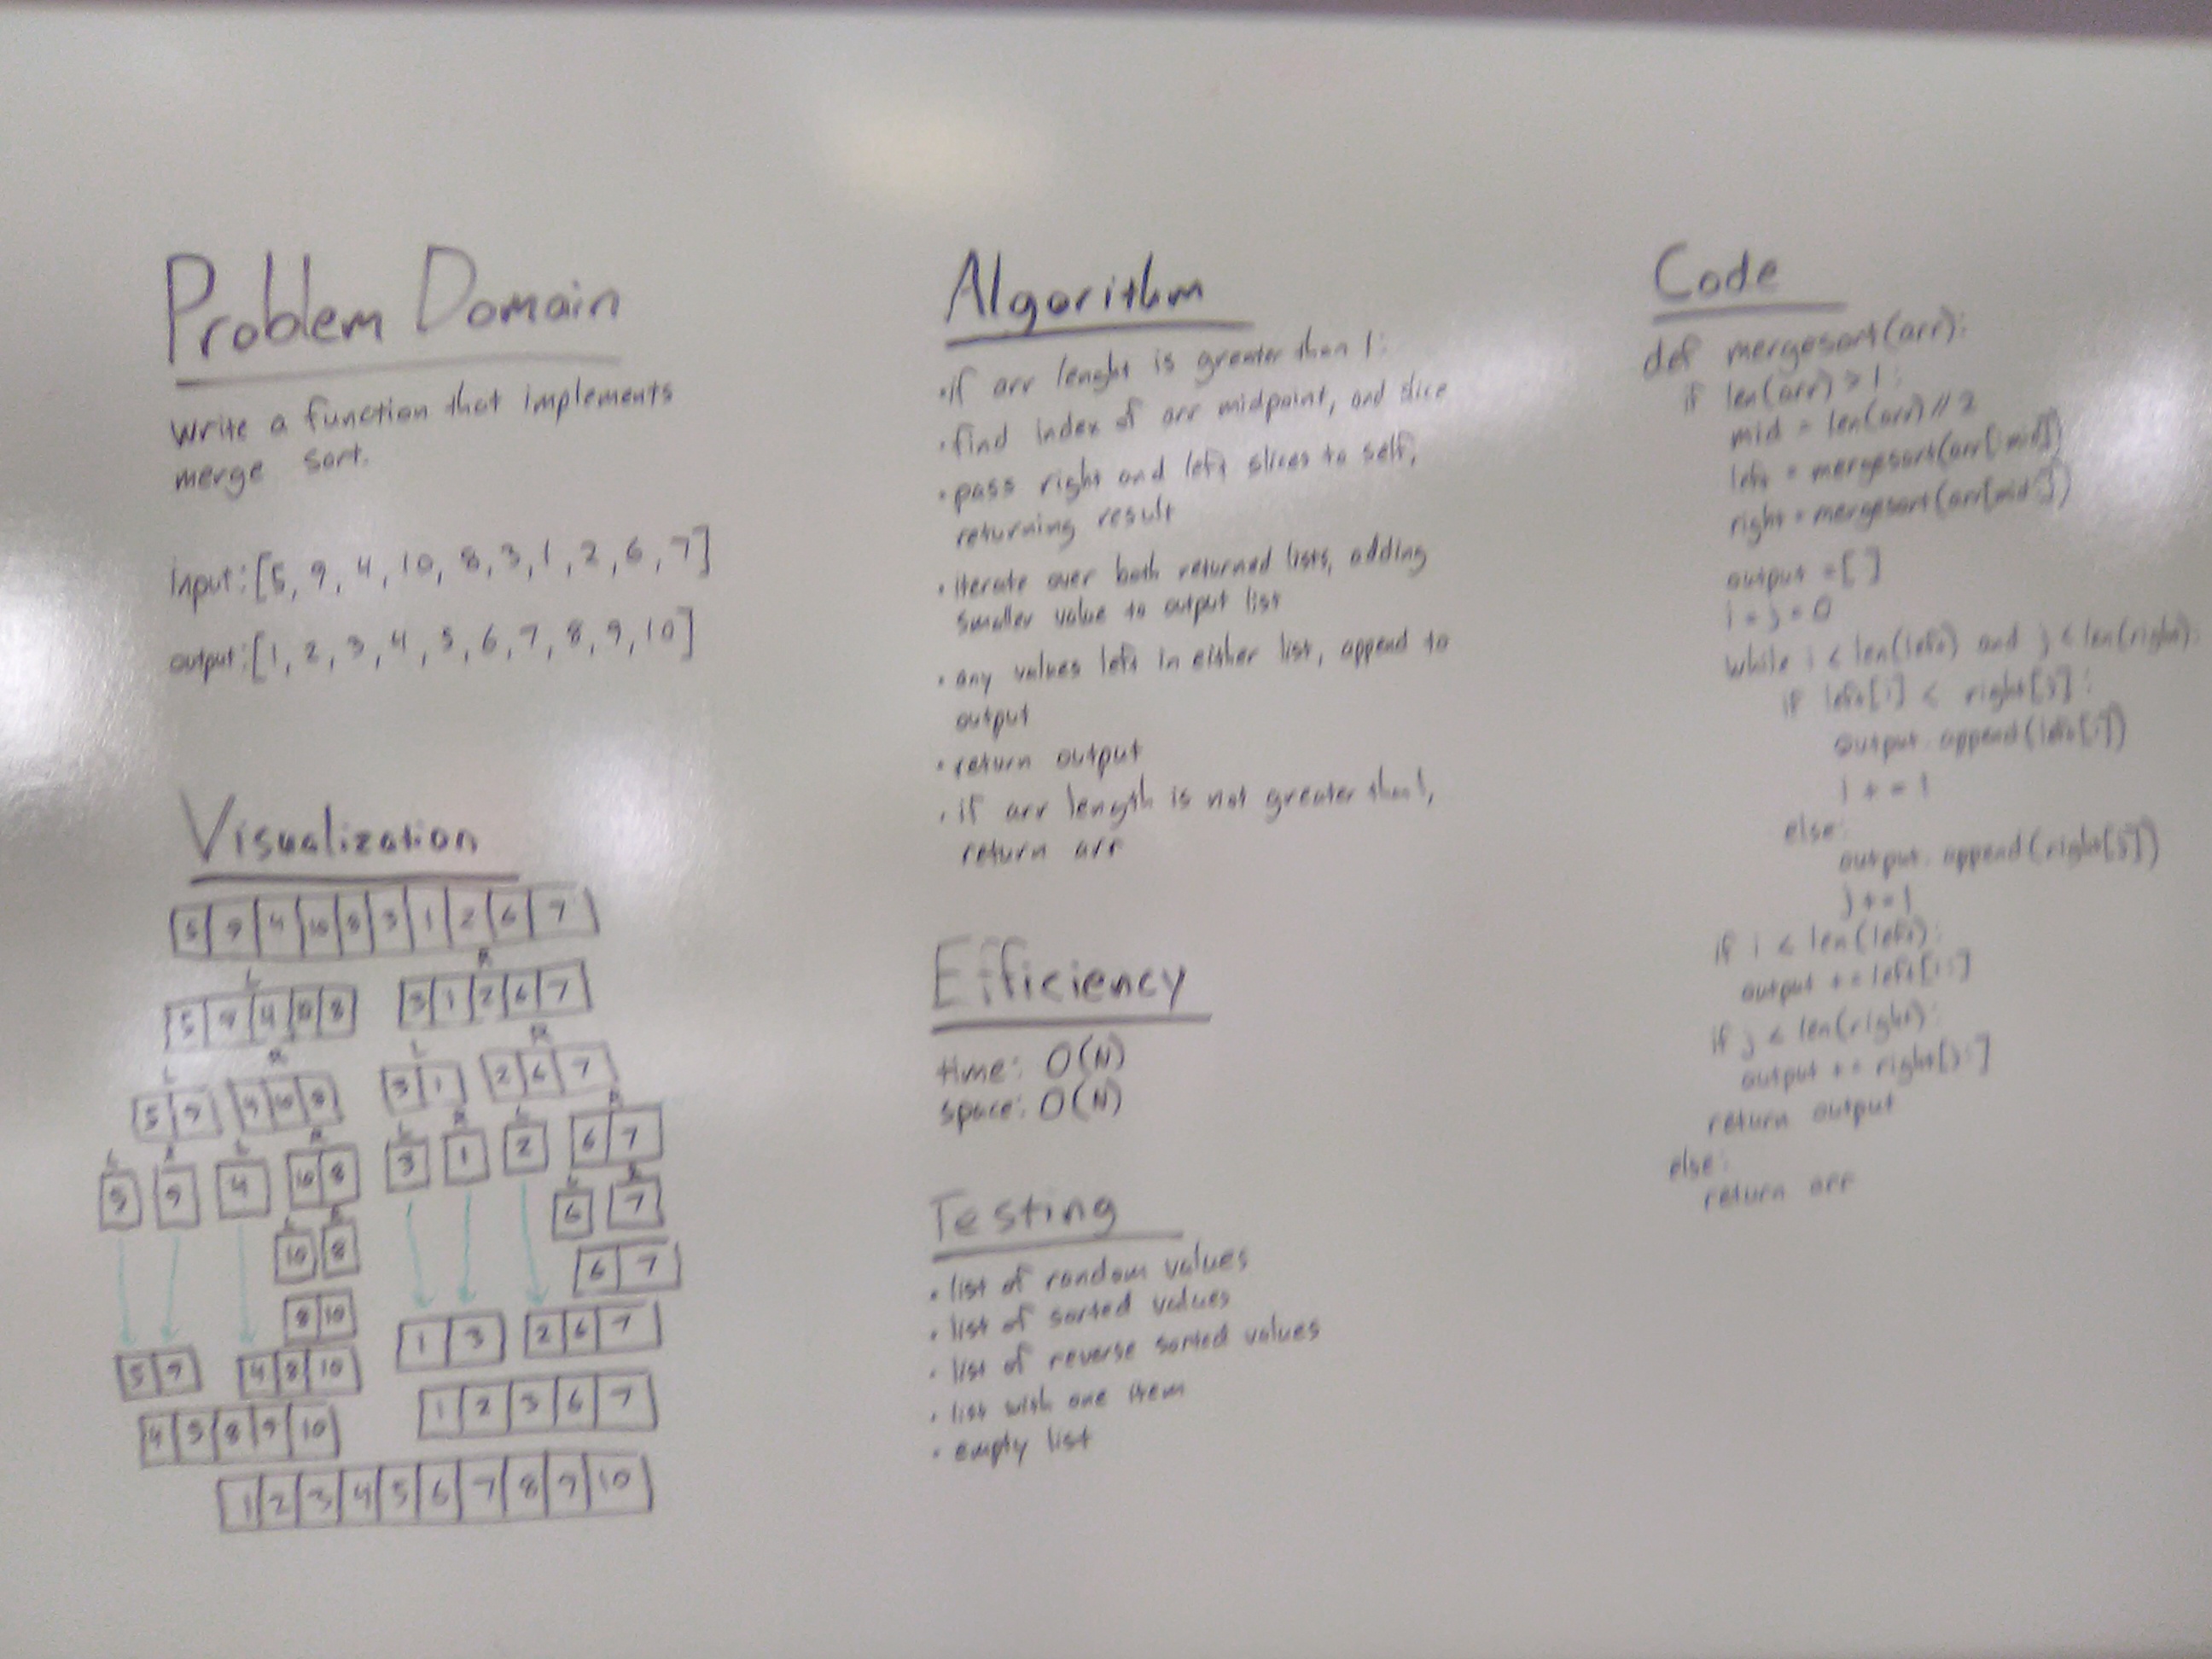 Problem Domain
Write a function that implements
merge sort.
input: [5, 9, 4, 10, 8, 3, 1, 2, 6, 7]
output: [1, 2, 3, 4, 5, 6, 7, 8, 9, 10]
Visualization
5 9 4 10 8 3 1 2 6 7
L R
5 9 4 10 8 3 1 2 6 7
L R L R
5 9 4 10 8 3 1 2 6 7
L R L R L R L R
5 9 4 10 8 3 1 2 6 7
L R L R
10 8 6 7
8 10 6 7
5 9 4 8 10 1 3 2 6 7
4 5 8 9 10 1 2 3 6 7
1 2 3 4 5 6 7 8 9 10
Algorithm
• if arr lenght is greater than 1:
• find index of arr midpoint, and slice
• pass right and left slices to self,
returning result
• iterate over both returned lists, adding
smaller value to output list
• any values left in either list, append to
output
• return output
• if arr length is not greater than 1,
return arr
Efficiency
time: O(N)
space: O(N)
Testing
• list of random values
• list of sorted values
• list of reverse sorted values
• list with one item
• empty list
Code
def mergesort(arr):
if len(arr) > 1:
mid = len(arr) // 2
left = mergesort(arr[:mid])
right = mergesort(arr[mid:])
output = []
i = j = 0
while i < len(left) and j < len(right):
if left[i] < right[j]:
output.append(left[i])
i += 1
else:
output.append(right[j])
j += 1
if i < len(left):
output += left[i:]
if j < len(right):
output += right[j:]
return output
else:
return arr